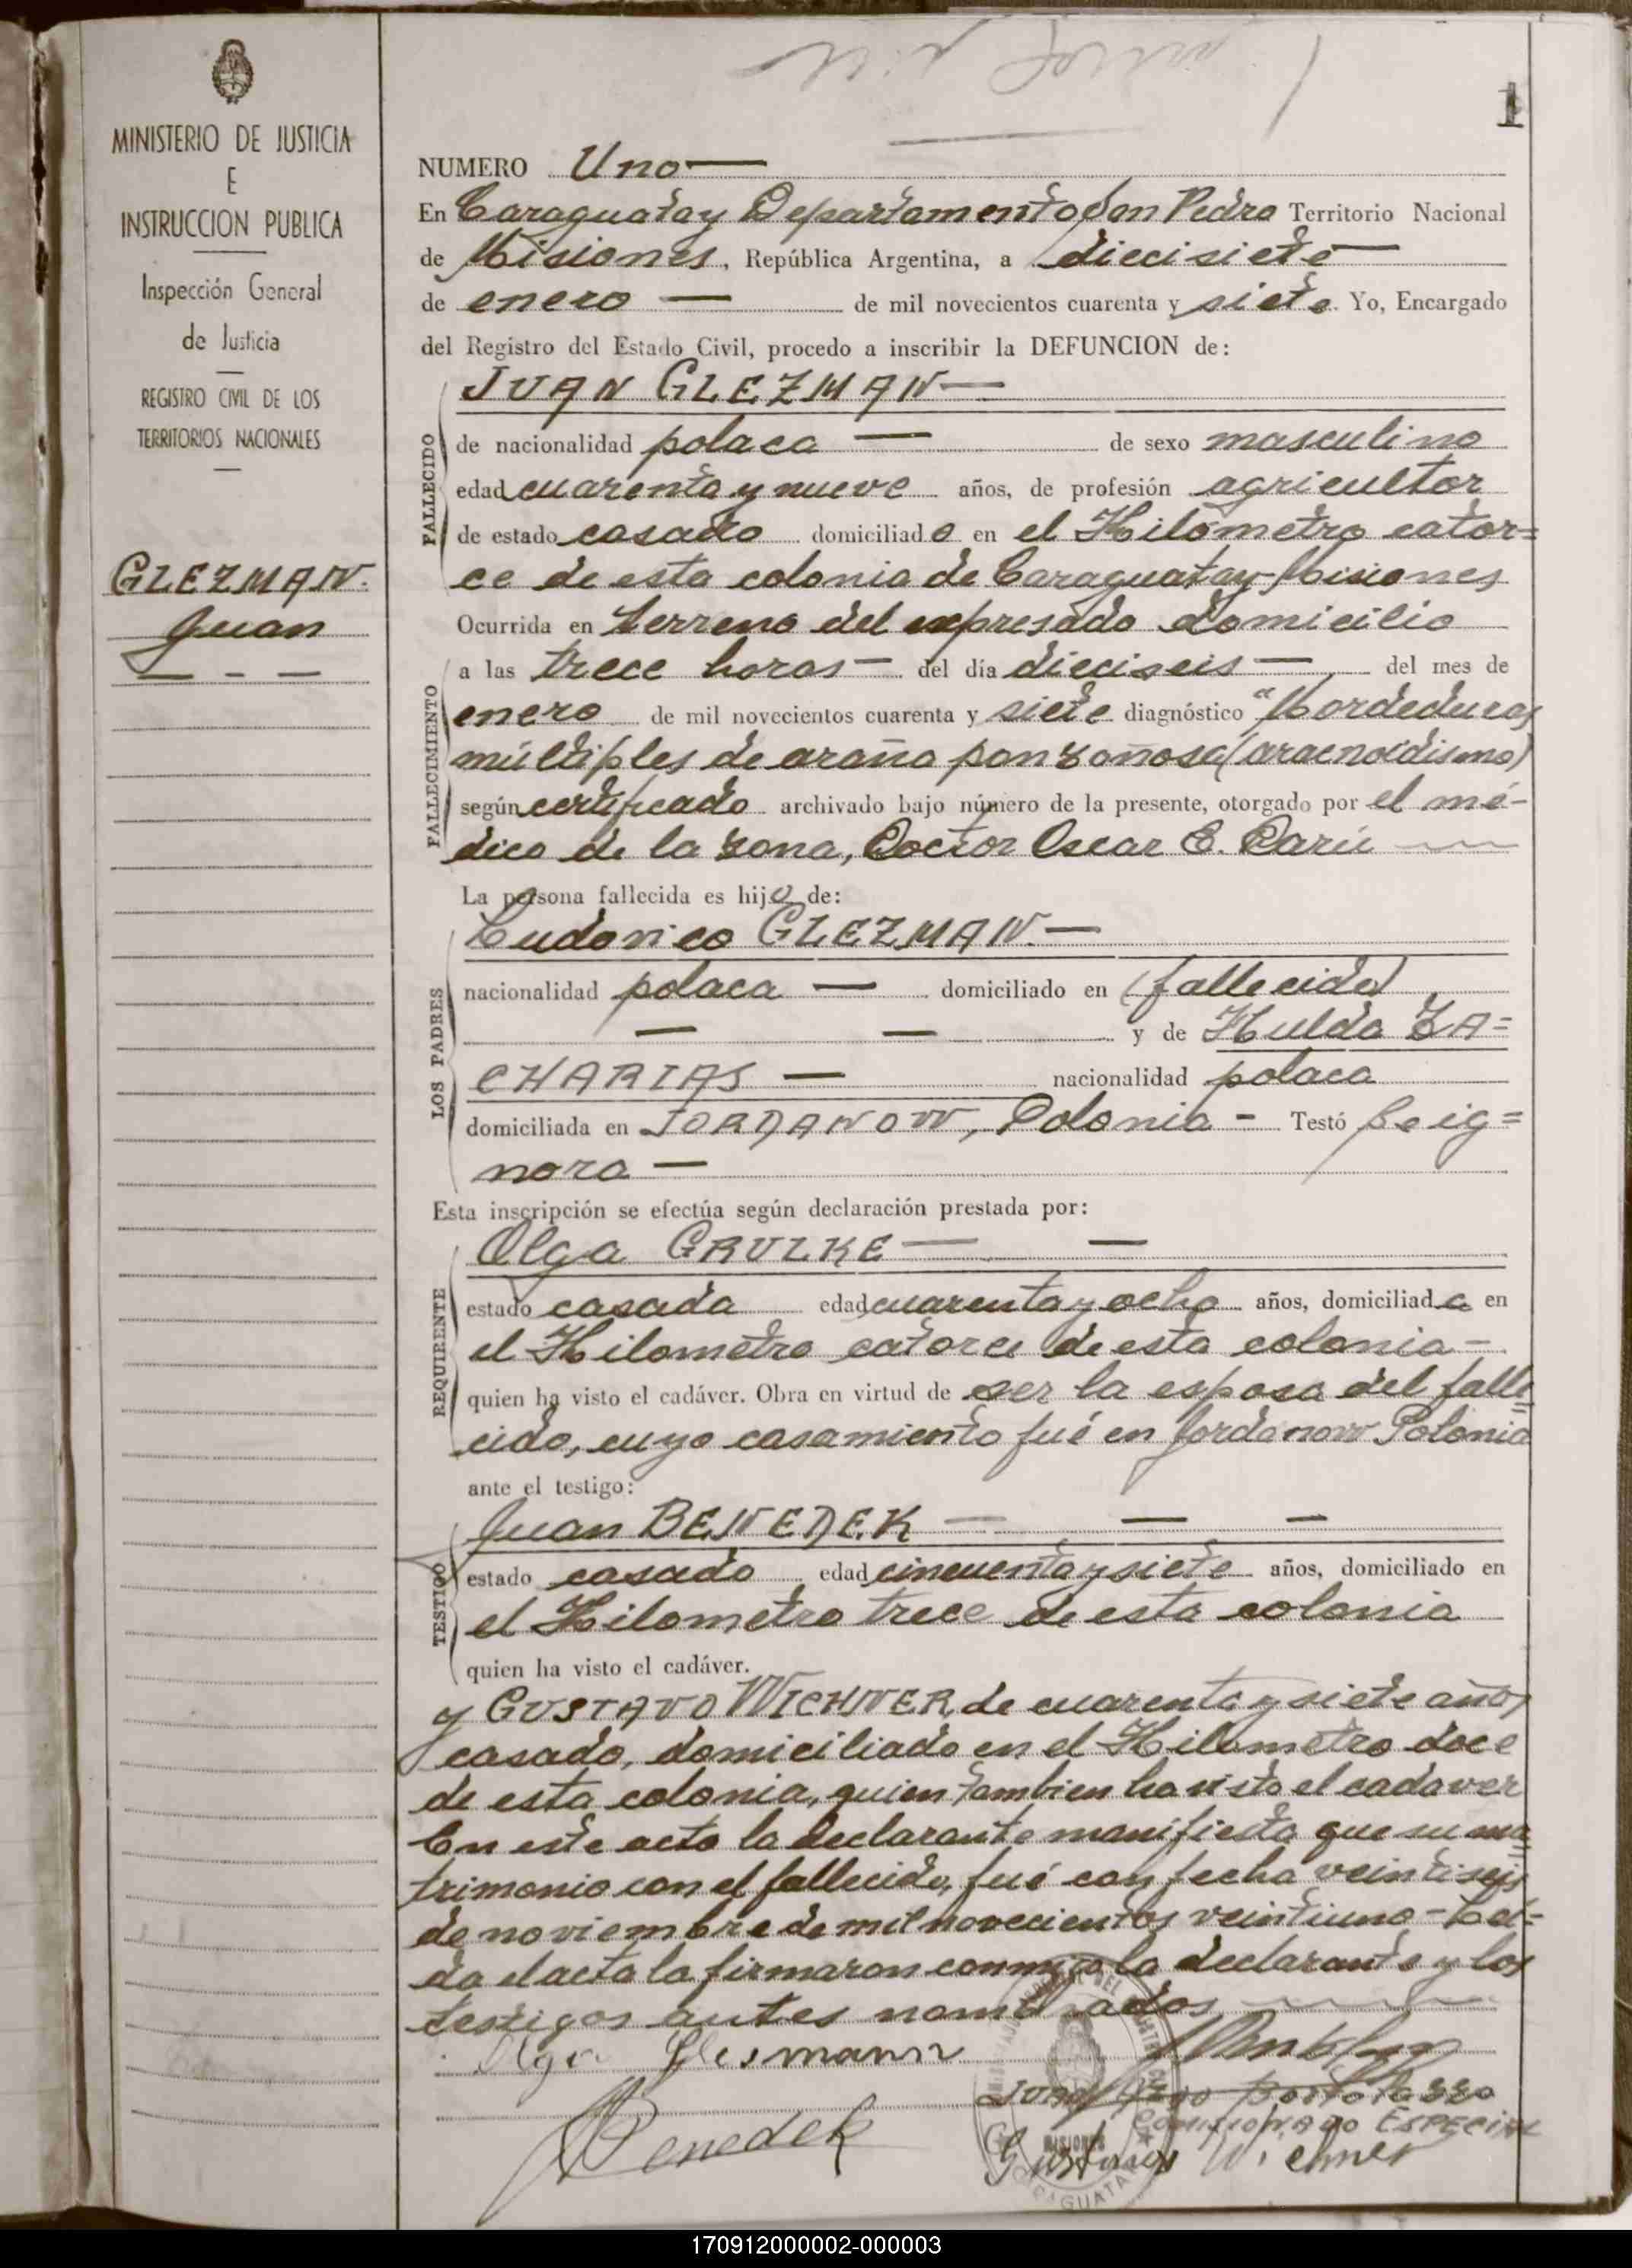 1
MINISTERIO DE JUSTICIA
E
INSTRUCCION PUBLICA
Inspección General
de Justicia
REGISTRO CIVIL DE LOS
TERRITORIOS NACIONALES
GLEZMAN.
Juan
NUMERO Uno
En Caraguatay Departamento San Pedro Territorio Nacional
de Misiones, República Argentina, a diecisiete
de enero de mil novecientos cuarenta y siete. Yo, Encargado
del Registro del Estado Civil, procedo a inscribir la DEFUNCION de:
JUAN GLEZMAN
FALLECIDO
de nacionalidad polaca de sexo masculino
edad cuarenta y nueve años, de profesión agricultor
de estado casado domiciliado en el Kilómetro cator=
ce de esta colonia de Caraguatay-Misiones
Ocurrida en terreno del expresado domicilio
FALLECIMIENTO
a las trece horas del día dieciseis del mes de
enero de mil novecientos cuarenta y siete diagnóstico "Mordeduras
múltiples de araña ponzoñosa (aracnoidismo)
según certificado archivado bajo número de la presente, otorgado por el mé-
dico de la zona, Doctor Oscar E. Darú
La persona fallecida es hijo de:
LOS PADRES
Ludovico GLEZMAN.
nacionalidad polaca domiciliado en (fallecido)
y de Hulda ZA=
CHARIAS nacionalidad polaca
domiciliada en JORDANOW, Polonia - Testó Se ig=
nora
Esta inscripción se efectúa según declaración prestada por:
REQUIRENTE
Olga GRULKE
estado casada edad cuarenta y ocho años, domiciliada en
el Kilometro catorce de esta colonia
quien ha visto el cadáver. Obra en virtud de ser la esposa del falle
cido, cuyo casamiento fué en Jordanow Polonia
ante el testigo:
TESTIGO
Juan BENEDEK
estado casado edad cincuenta y siete años, domiciliado en
el Kilometro trece de esta colonia
quien ha visto el cadáver.
y GUSTAVO WICHNER, de cuarenta y siete años,
casado, domiciliado en el Kilometro doce
de esta colonia, quien tambien ha visto el cadaver
En este acto la declarante manifiesta que su ma=
trimonio con el fallecido, fué con fecha veintiseis
de noviembre de mil novecientos veintiuno - Leí=
da el acta la firmaron conmigo la declarante y los
testigos antes nombrados
Olga Glesmann
COMISIONADO ESPECIAL
Benedek
Gustavo Wichner
MISIONES
170912000002-000003